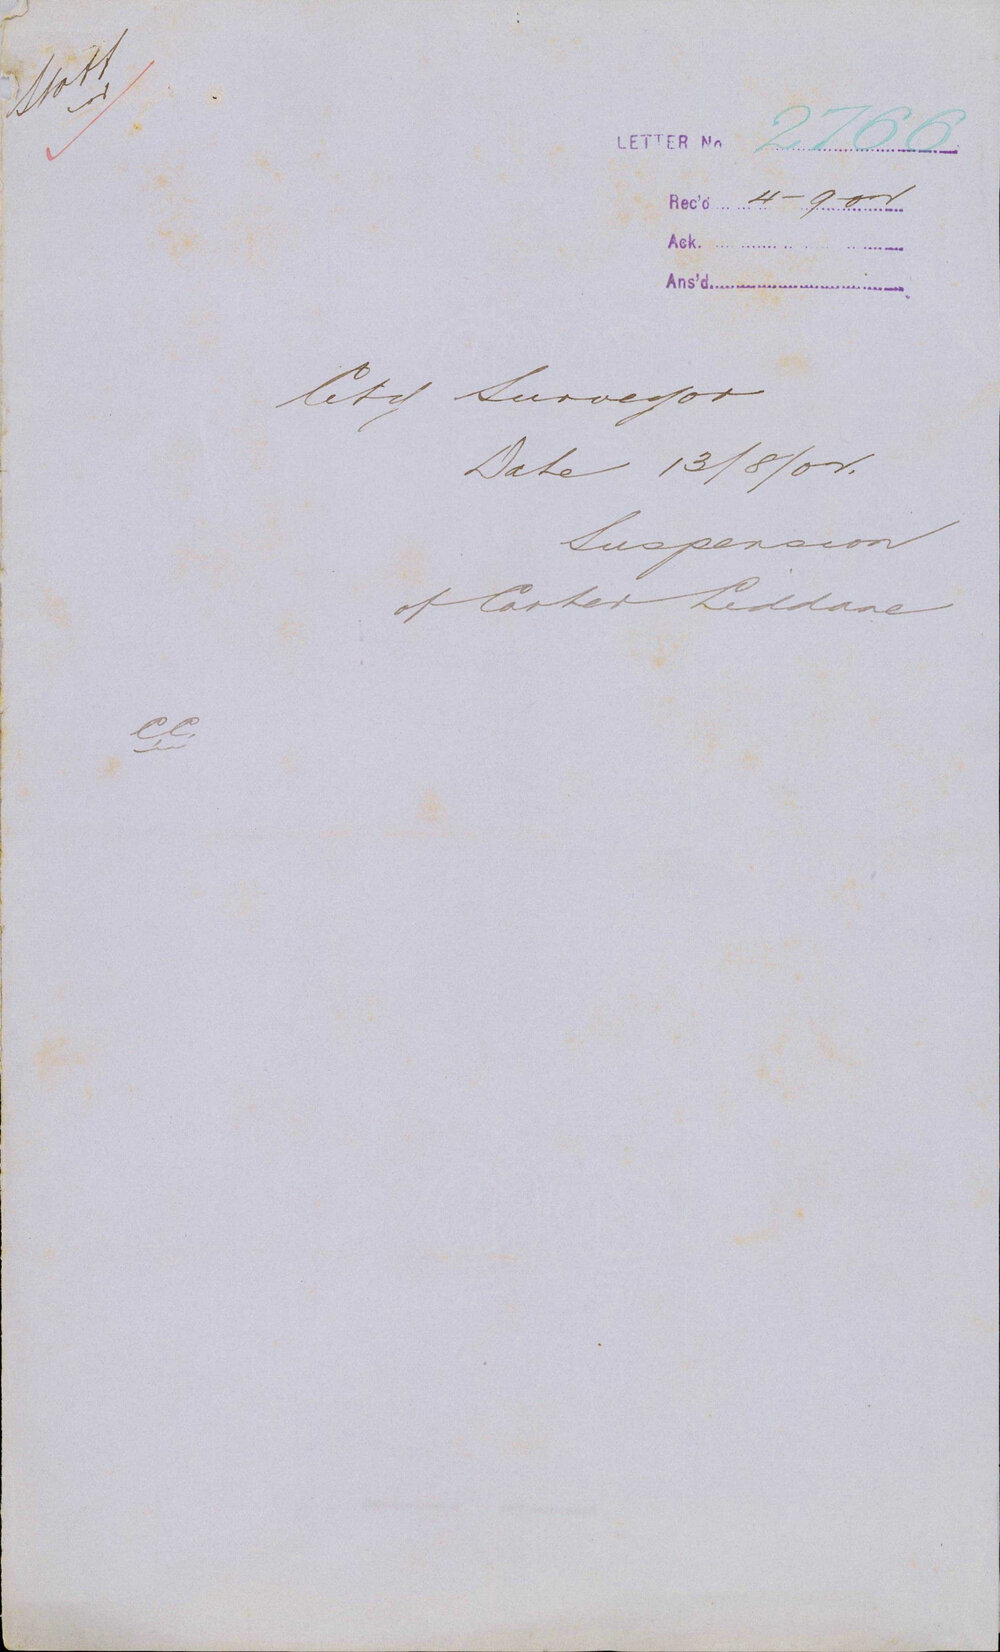 Staff
LETTER No 2766
Rec'd 4-9-02
Ack.
Ans'd
City Surveyor
Date 13/8/02.
Suspension
of Carter Liddane
CC.